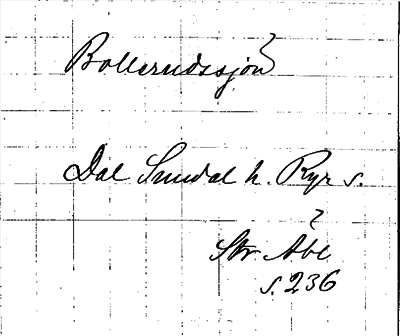 Bollerudssjön ?
Dal Sundal h. Ryr s.
?
Str Åbl
s. 236